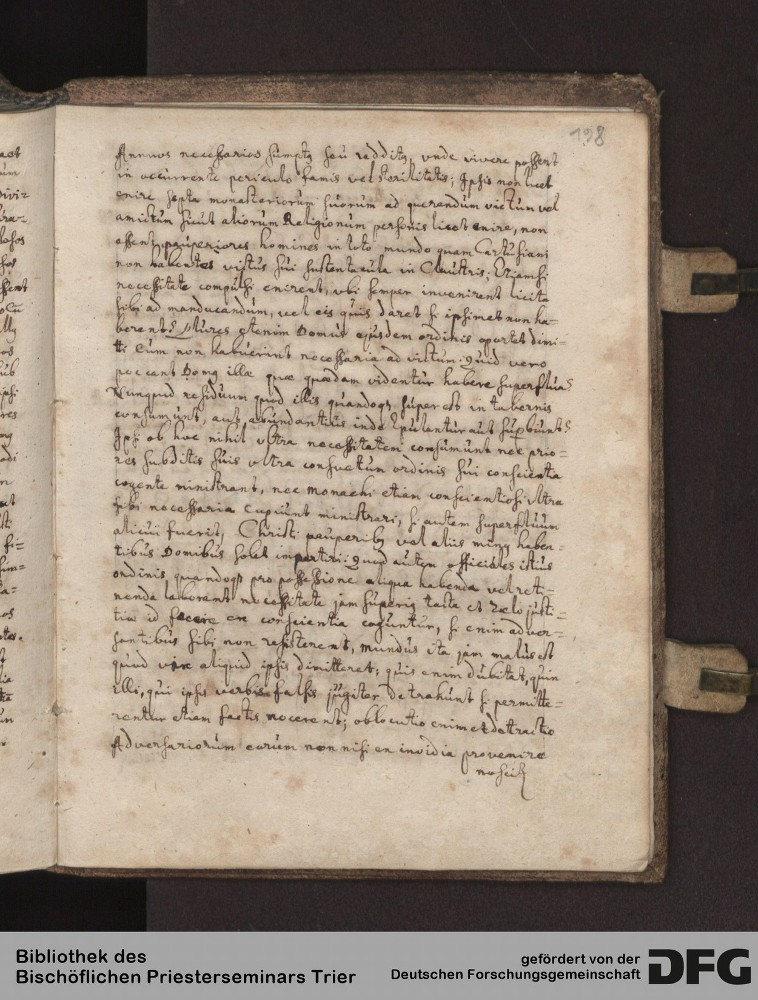 198
Annuos necessarios sumptq seu redditq, unde vivere possent
in occurrente periculo famis vel sterilitatis; Ipsis non licet
enire septa monasteriorum suorum ad querendum victum vel
amictum sicut aliorum Religionum personis licet enire, non
essent pauperiores homines in toto mundo quam Cartusiani
non habentes victus sui sustentacula in Claustris; Etiamsi
necessitate compulsi enirent, ubi semper invenirent licita
sibi ad manducandum, vel eis quis daret si ipsimet non ha-
berent? Plures etenim Domus ejusdem ordinis oportet dimi-
tti cum non habuerint necessaria ad victum: quid vero
peccant Domq illæ quæ quædam videntur habere superflua?
Nunquid residuum quod illis quandoq3 superest in tabernis
consumunt, aut abundantius inde Epulantur aut supbiunt?
Ipsi ob hoc nihil ultra necessitatem consumunt nec prio-
res subditis suis ultra consuetum ordinis sui conscientia
cogente ministrant, nec monachi etiam conscientiosi ultra
sibi necessaria cupiunt ministrari, si autem superfluum
alicui fuerit, Christi pauperibq vel aliis minq haben-
tibus Domibus solet impartiri: quod autem officiales istius
ordinis quandoq3 pro possessione aliqua habenda vel reti-
nenda laborant necessitate jam superiq tacta et zelo justi-
tiæ id facere en conscientia coguntur, si enim adver-
santibus sibi non resisterent, mundus ita jam malus est
quod vix aliquid ipsis dimitteret; quis enim dubitat, quin
illi, qui ipsis verbis falsis jugiter detrahunt si permitte-
rentur etiam factis nocerent; oblocutio enim et detractio
Adversariorum eorum non nisi en invidia provenire
noscit
Bibliothek des
Bischöflichen Priesterseminars Trier
gefördert von der
Deutschen Forschungsgemeinschaft
DFG